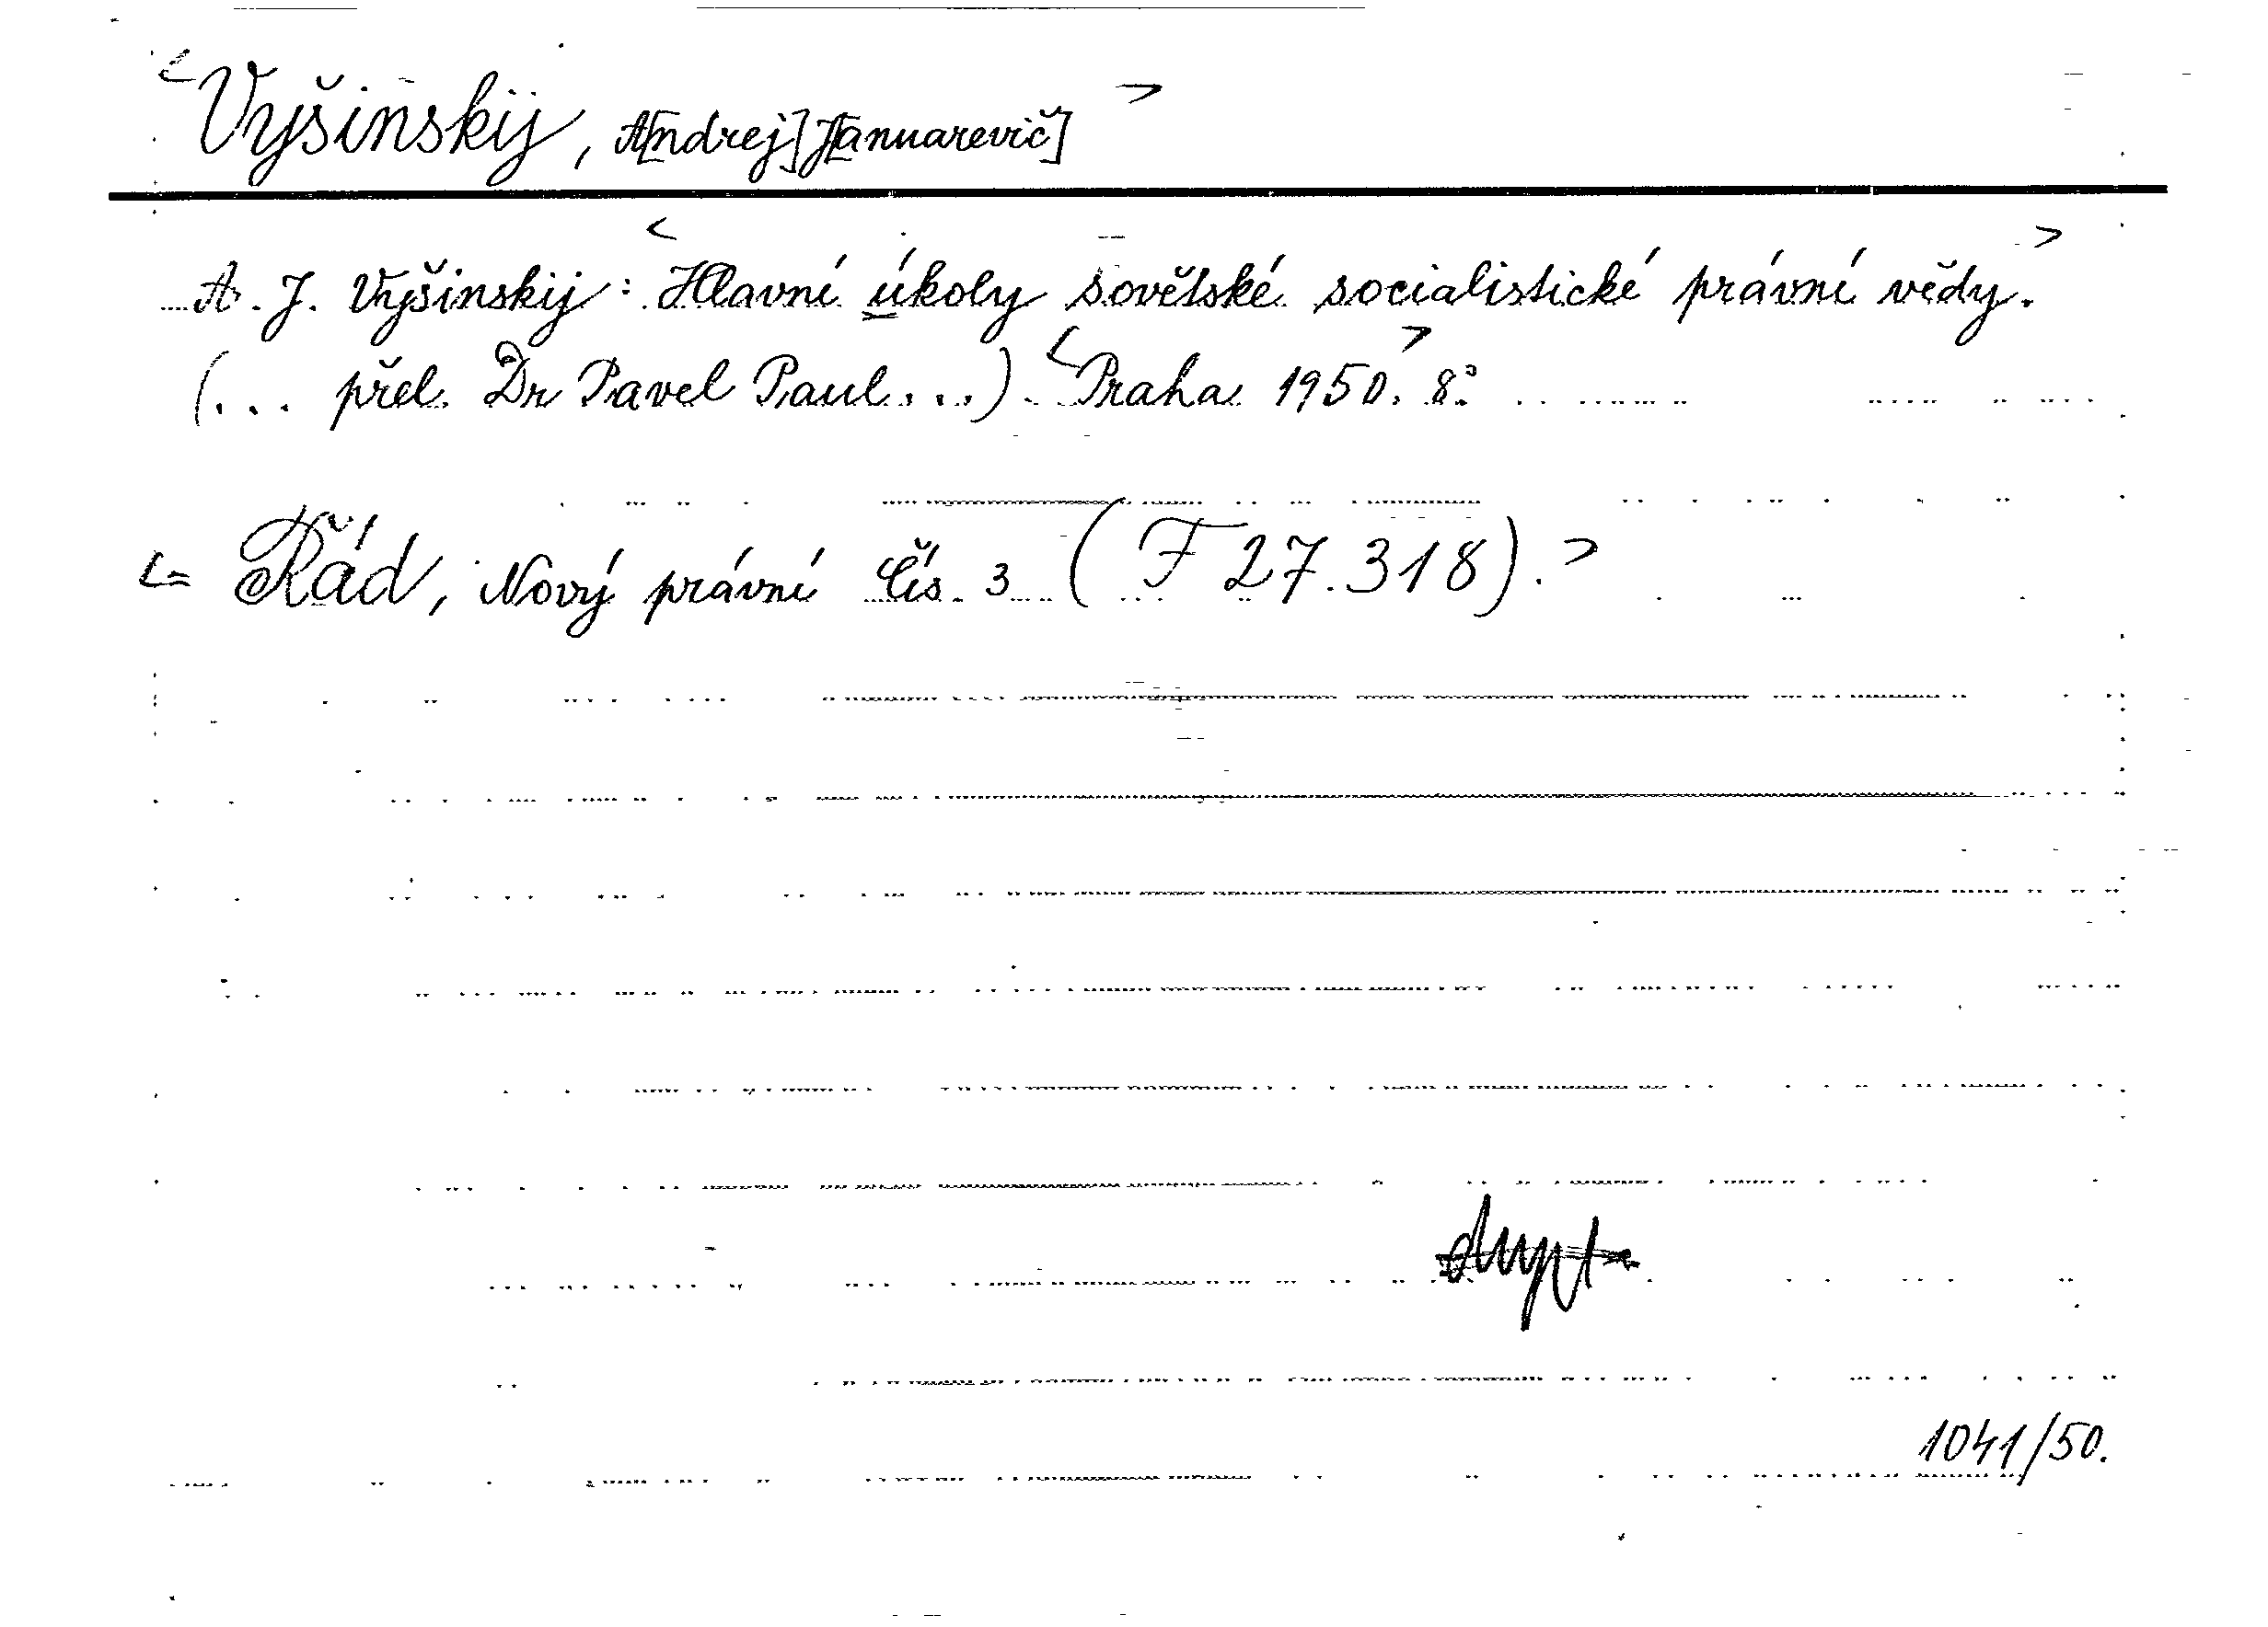 <Vyšinskij, A[ndrej] J[anuarevič]>
A. J. Vyšinskij: <Hlavní úkoly sovětské socialistické právní vědy.>
(... přel. Dr Pavel Paul ...). <Praha 1950.> 8°.
<= Řád, Nový právní čís. 3 (F 27.318).>
1041/50.